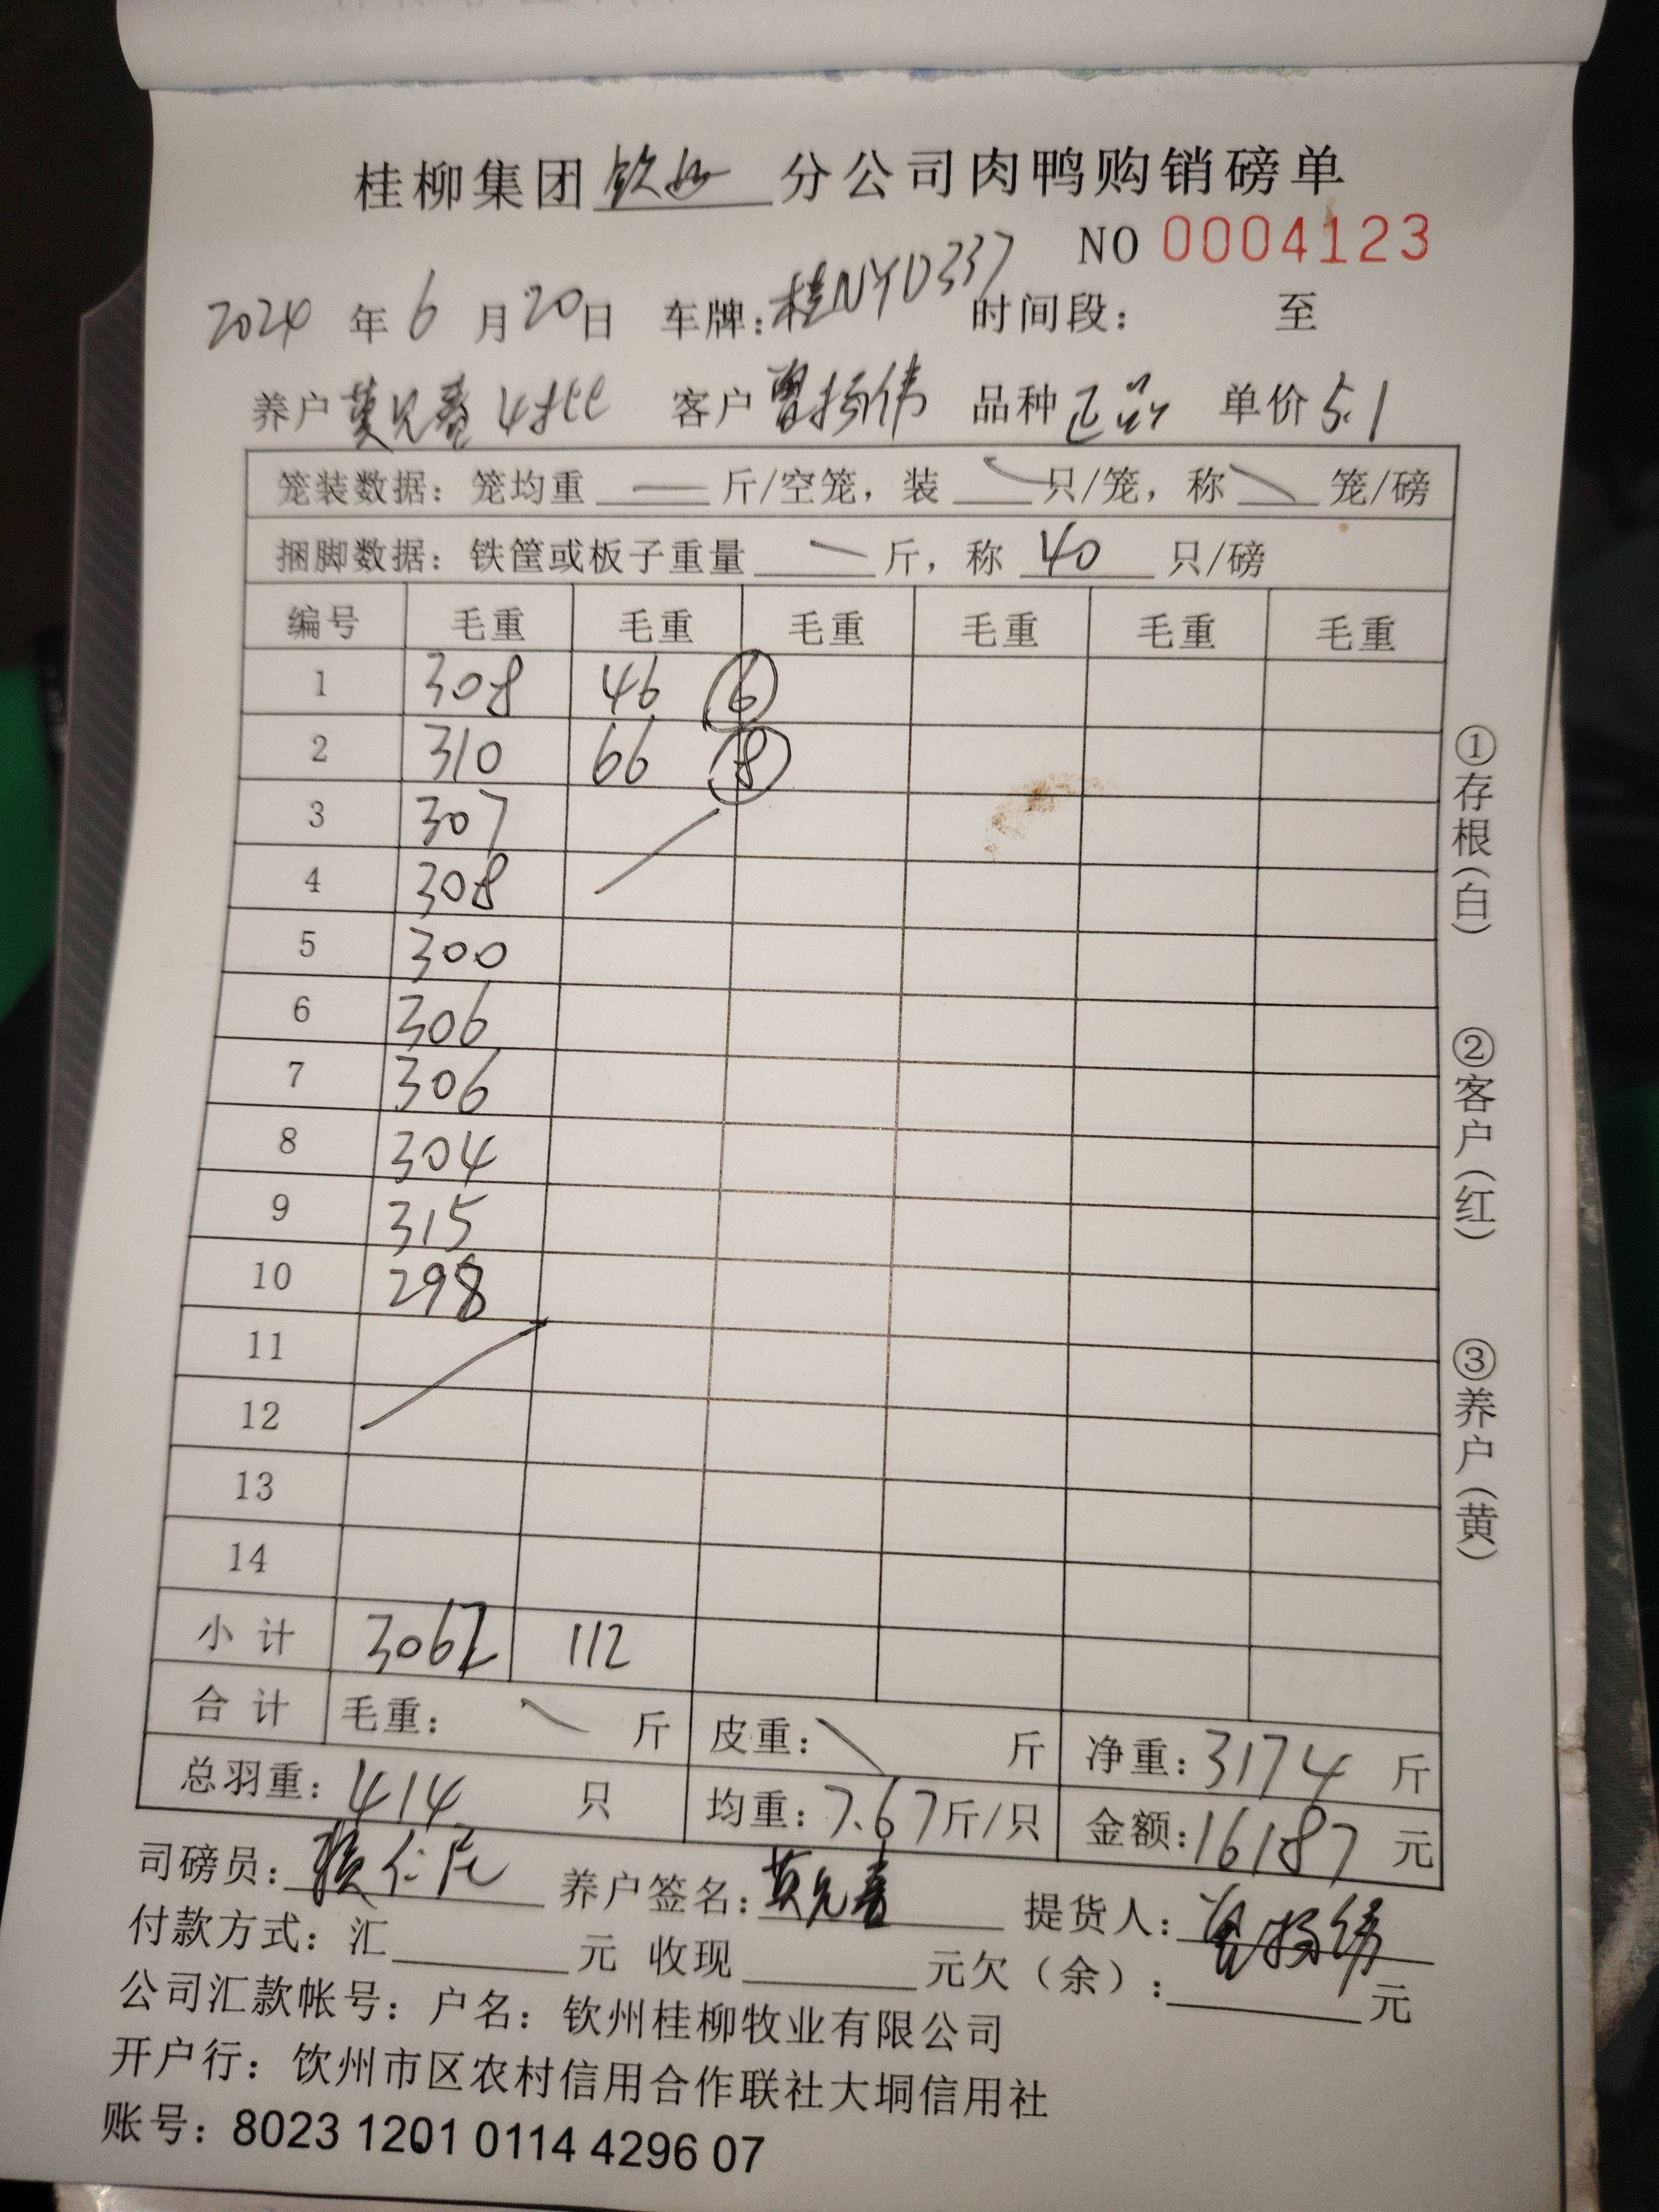 桂柳集团 钦州 分公司肉鸭购销磅单
NO 0004123
2024 年 6 月 20 日 车牌: 桂NYD337 时间段: 至
养户 莫兄春 4批 客户 曾扬伟 品种 正品 单价 5.1
笼装数据: 笼均重 — 斤/空笼, 装 只/笼, 称 笼/磅
捆脚数据: 铁筐或板子重量 斤, 称 40 只/磅
编号 毛重 毛重 毛重 毛重 毛重 毛重
1 308 46 ⑥
2 310 66 ⑧
3 307
4 308
5 300
6 306
7 306
8 304
9 315
10 298
11
12
13
14
小计 3062 112
合计 毛重: 斤 皮重: 斤 净重: 3174 斤
总羽重: 414 只 均重: 7.67 斤/只 金额: 16187 元
司磅员: 养户签名: 提货人:
付款方式: 汇 元 收现 元欠（余）: 元
公司汇款帐号: 户名: 钦州桂柳牧业有限公司
开户行: 钦州市区农村信用合作联社大垌信用社
账号: 8023 1201 0114 4296 07
①存根(白)
②客户(红)
③养户(黄)